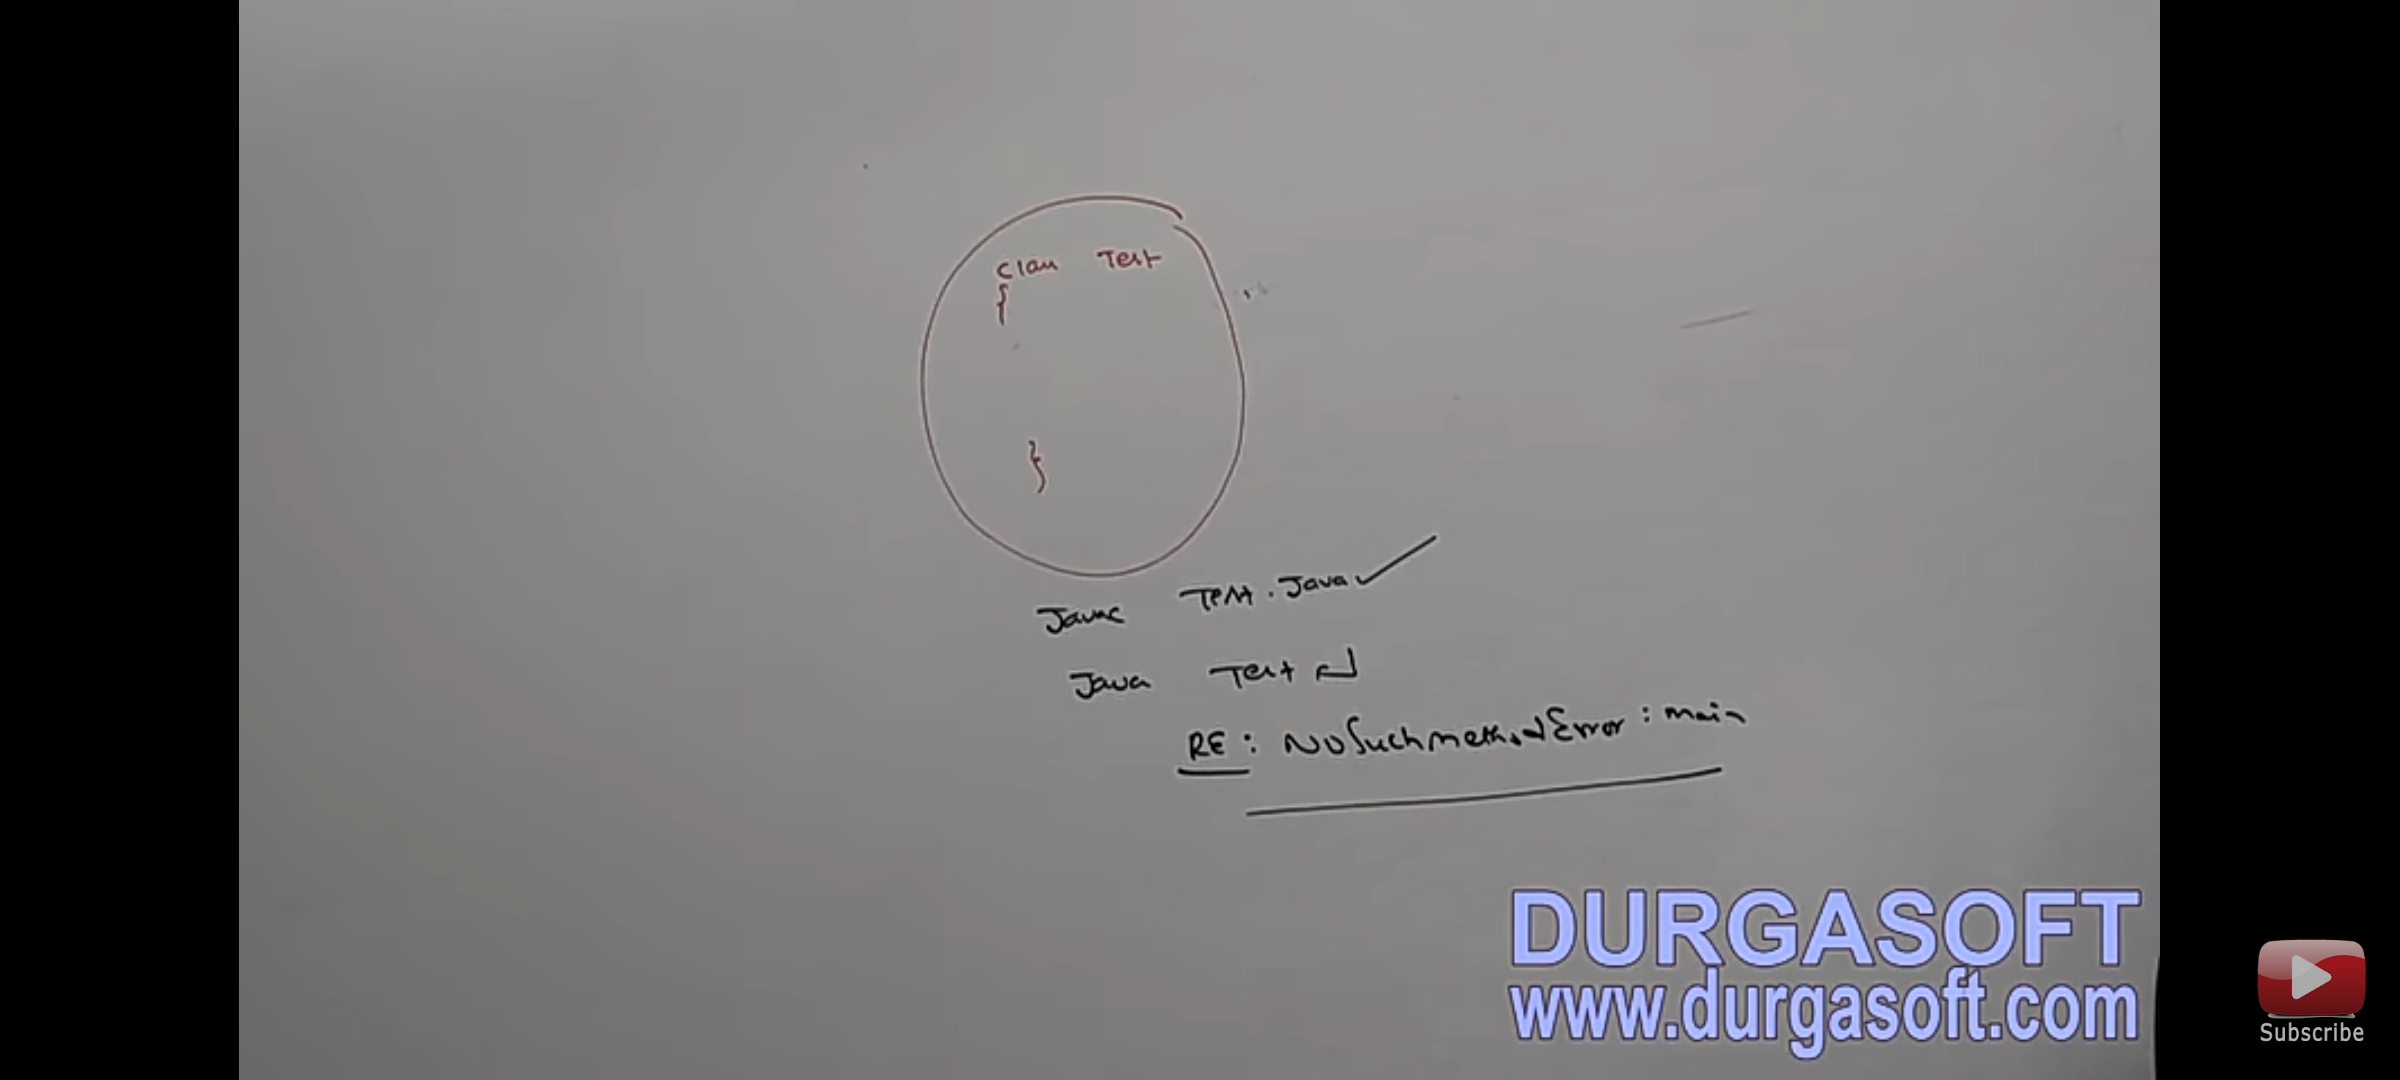 class Test
{
}
Javac Test.Java
Java Test
RE: NoSuchmethodError: main
DURGASOFT
www.durgasoft.com
Subscribe